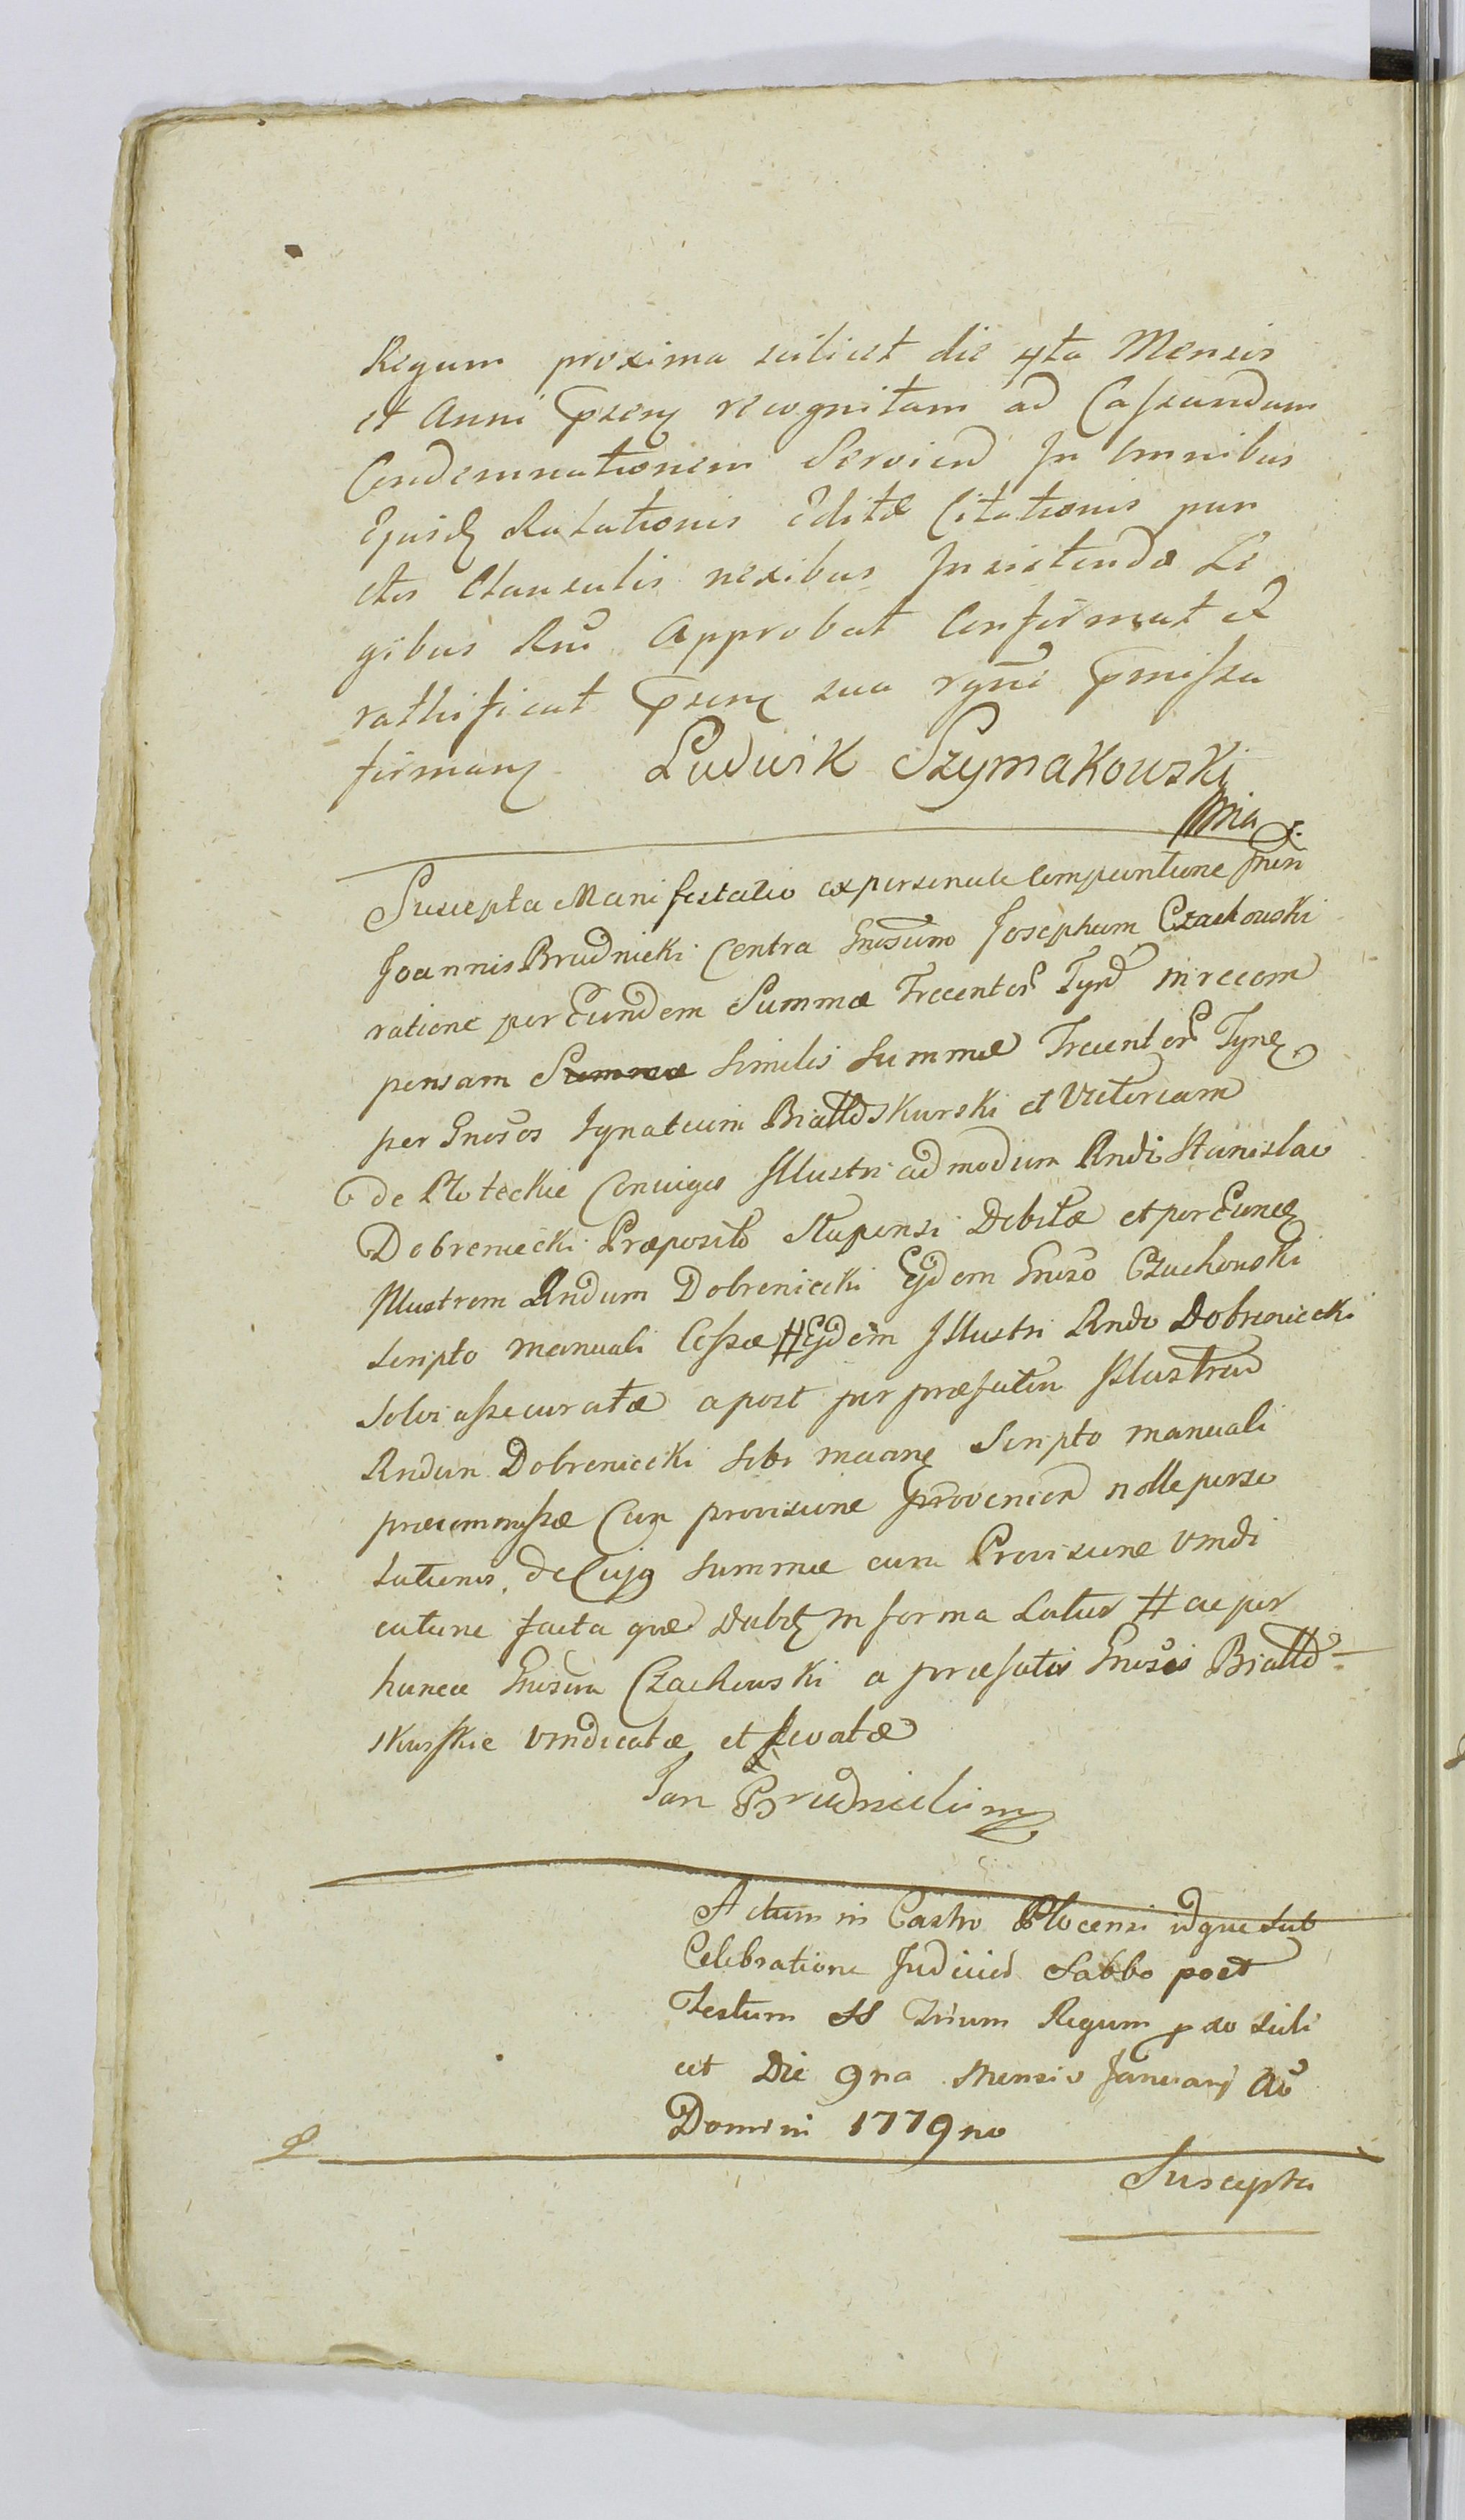 Regum proxima scilicet die 4ta Mensis
et Anni Praesen recognitam ad Cassandum
Condemnationem Serviend In omnibus
Ejusd Relationis Editae Citationis pun
ctis Clausulis nexibus Insistendo Le
gibus Rni Approbat Confirmat et
rathificat Praesen sua rgne Pmissa
firman Ludwik Szymakowski
Mia
Suscepta Manifestatio ex personali Comparitione Gnosi
Joannis Brudnicki Contra Gnosum Josephum Czachowski
ratione per Eundem Summae Trecentor Tynf in recom
pensam Summae Similis Summae Trecentor Tynf
per Gnosos Ignatium Białłoskurski et Victoriam
de Płoteckie Conjuges Illustri admodum Rndo Stanislao
Dobreniecki Praeposito Stupensi Debitae et per Eund
Illustrem Rndum Dobreniecki Ejdem Gnoso Czachowski
scripto manuali Cessae # Ejdem Illustri Rndo Dobreniecki
Solvi assecuratae a post per praefatum Illustrem
Rndum Dobreniecki Sibi Scripto manuali
Cum provisione Provenien nolle perso
lutionis, de Cujq Summae cum Provisione vindi
catione facta quae Dabit in forma Latius # ac per
hunce Gnosum Czachowski a praefatis Gnosis Białło-
skurskie vindicatae et levatae
Jan Brudnicki mp
Actum in Castro Plocensi idque sub
Celebratione Judicior Sabbo post
Festum SS Trium Regum pxo scili
cet Die 9na Mensis Januarii Ao
Domini 1779no
Suscepta